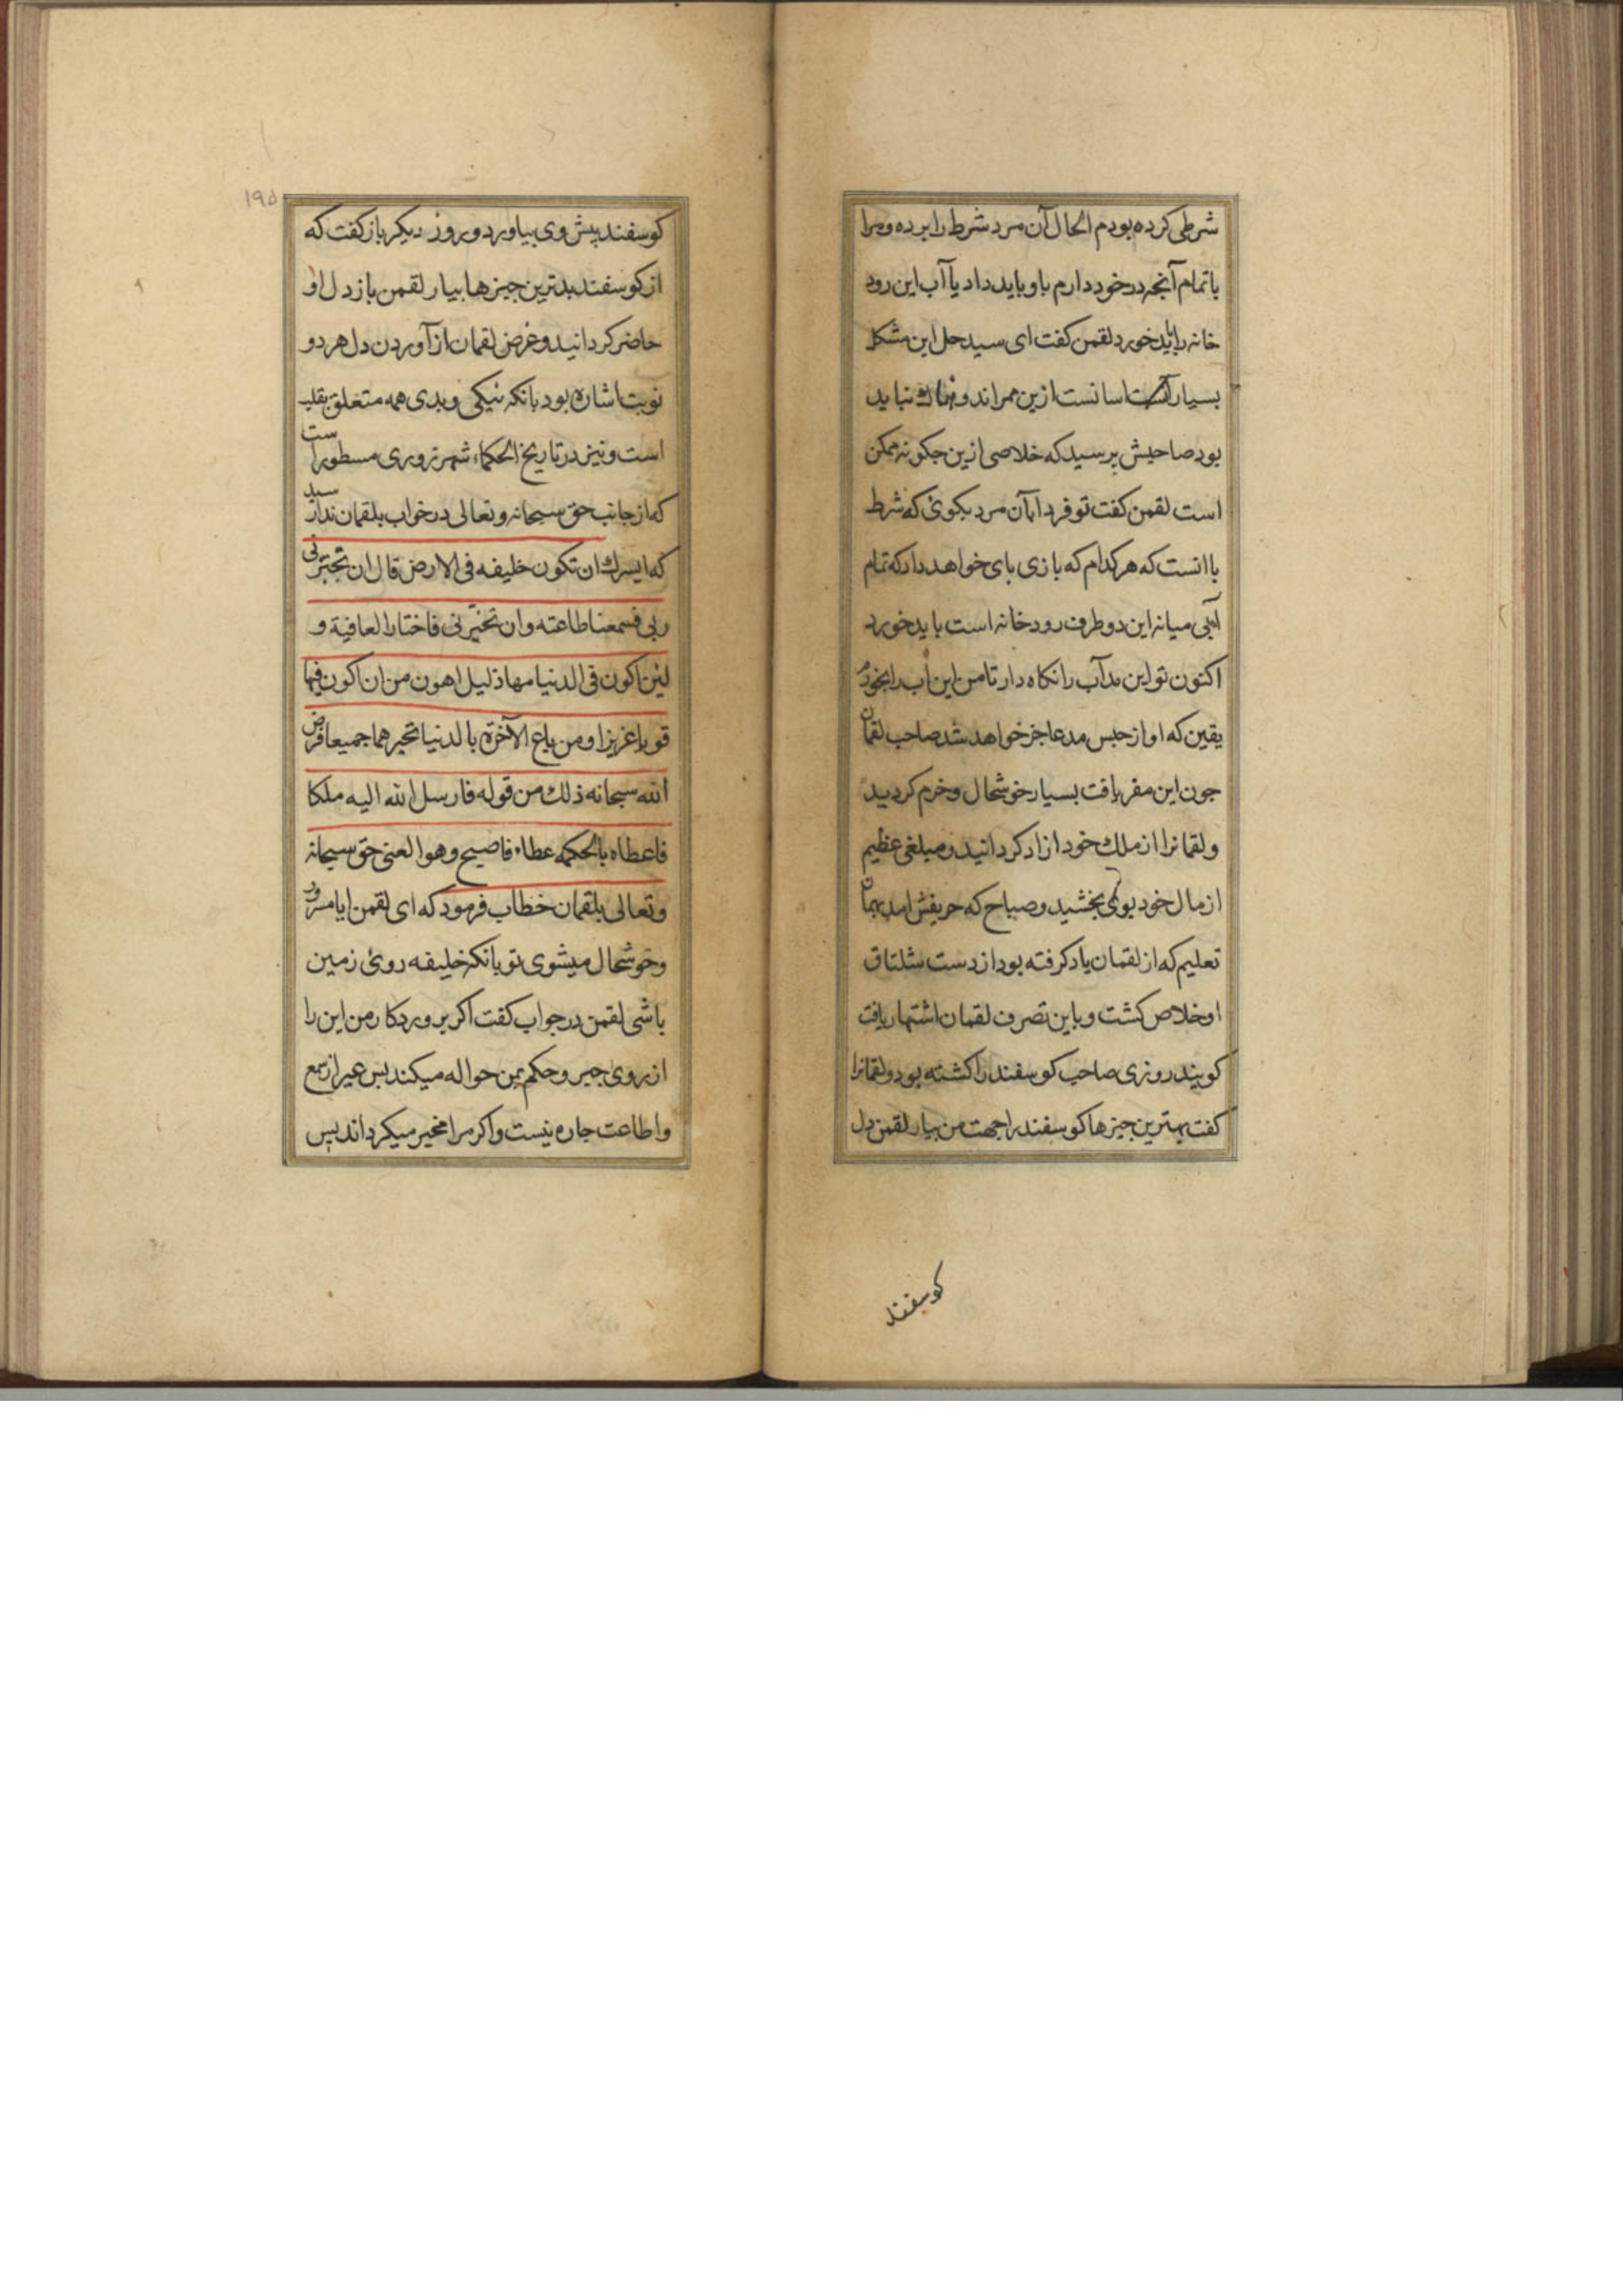 شرطی کرده بودم الحال آن مرد شرط را برده و مرا
با تمام آنچه در خود دارم باو باید داد یا آب این رود
خانه را باید خورد لقمن کفت ای سید حل این مشکل
بسیار اسانست ازین ممر اندوهناك نباید
بود صاحبش پرسید که خلاصی ازین جکونه ممکن
است لقمن کفت تو فردا بآن مرد بکوئی که شرط
با انست که هر کدام که بازی بای خواهد داد که تمام
آبی میانه این دو طرف رودخانه است باید خورد
اکنون تو این مد آب را نکاه دار تا من این آب را بخورم
یقین که او از حبس مد عاجز خواهد شد صاحب لقمان
جون این مفر یافت بسیار خوشحال و خرم کردید
و لقمانرا از ملك خود ازاد کردانید و مبلغی عظیم
از مال خود بوی بخشید و صباح که حریفش امد بهمان
تعلیم که از لقمان یاد کرفته بود از دست شلتاق
او خلاص کشت و باین تصرف لقمان اشتهار یافت
کویند روزی صاحب کوسفند را کشته بود و لقمانرا
کفت بهترین جیزها کوسفند را جهت من بیار لقمن دل
کوسفند
۱۹۵
کوسفند پیش وی بیاورد و روز دیکر باز کفت که
از کوسفند بدترین جیزها بیار لقمن باز دل او
حاضر کردانید و غرض لقمان از آوردن دل هر دو
نوبت اشاره بود بانکه نیکی و بدی همه متعلق بقلب
است و نیز در تاریخ الحکماء شهرزوری مسطور است
که از جانب حق سبحانه و تعالی در خواب بلقمان ندا رسید
که ایسرك ان تکون خلیفه فی الارض قال ان تجبرنی
ربی فسمعنا طاعته وان تخیرنی فاختار العافیة و
لئن اکون فی الدنیا مهاذلیل اهون من ان اکون فیها
قویا عزیزا ومن باع الآخرة بالدنیا تخیرهما جمیعا فرض
الله سبحانه ذلك من قوله فارسل الله الیه ملکا
فاعطاه بالحکمه عطاء فاصبح وهو العنی حق سبحانه
و تعالی بلقمان خطاب فرمود که ای لقمن ایا مسرور
و خوشحال میشوی تو بانکه خلیفه روئی زمین
باشی لقمن در جواب کفت اکر پروردکار من این را
از روی جبر و حکم بمن حواله میکند بس غیر از سمع
و اطاعت جاره نیست و اکر مرا مخیر میکرداند بس